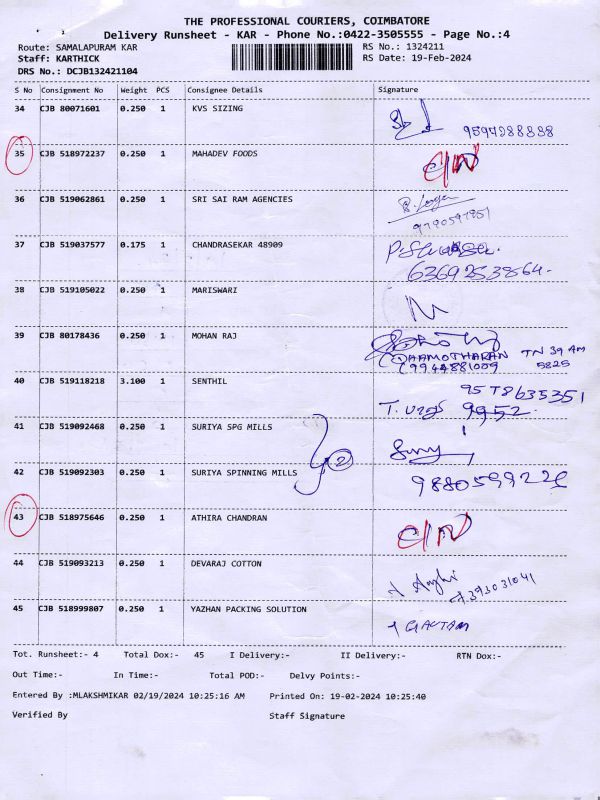 THE PROFESSIONAL COURIERS, COIMBATORE
Delivery Runsheet - KAR - Phone No.:0422-3505555 - Page No.:4
Route: SAMALAPURAM KAR RS No.: 1324211
Staff: KARTHICK RS Date: 19-Feb-2024
DRS No.: DCJB132421104
S No Consignment No Weight PCS Consignee Details Signature
34 CJB 80071601 0.250 1 KVS SIZING
35 CJB 518972237 0.250 1 MAHADEV FOODS
36 CJB 519062861 0.250 1 SRI SAI RAM AGENCIES
37 CJB 519037577 0.175 1 CHANDRASEKAR 48909
6369253864.
38 CJB 519105022 0.250 1 MARISWARI
39 CJB 80178436 0.250 1 MOHAN RAJ
DAAMOTHARAN TN 39 AM
9944881009 5825
40 CJB 519118218 3.100 1 SENTHIL
9578635351
9952.
41 CJB 519092468 0.250 1 SURIYA SPG MILLS
2
42 CJB 519092303 0.250 1 SURIYA SPINNING MILLS
43 CJB 518975646 0.250 1 ATHIRA CHANDRAN
44 CJB 519093213 0.250 1 DEVARAJ COTTON
45 CJB 518999807 0.250 1 YAZHAN PACKING SOLUTION
GAUTAM
Tot. Runsheet:- 4 Total Dox:- 45 I Delivery:- II Delivery:- RTN Dox:-
Out Time:- In Time:- Total POD:- Delvy Points:-
Entered By :MLAKSHMIKAR 02/19/2024 10:25:16 AM Printed On: 19-02-2024 10:25:40
Verified By Staff Signature